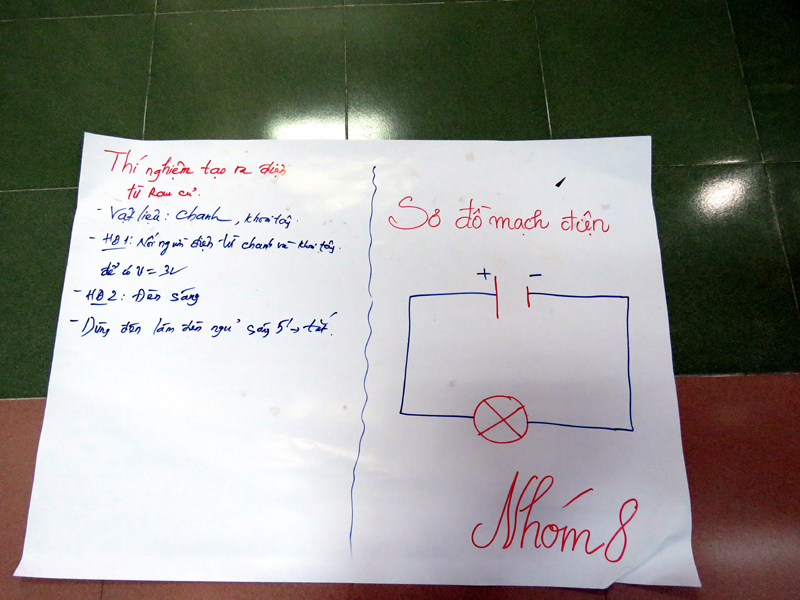 Thí nghiệm tạo ra điện
từ Rau củ.
- Vật liệu: Chanh, khoai tây.
- HĐ1: Nối nguồn điện từ chanh và khoai tây.
để có U = 3V
- HĐ2: Đèn sáng
- Dùng đèn làm đèn ngủ sáng 5' → tắt.
Sơ đồ mạch điện
+ -
Nhóm 8